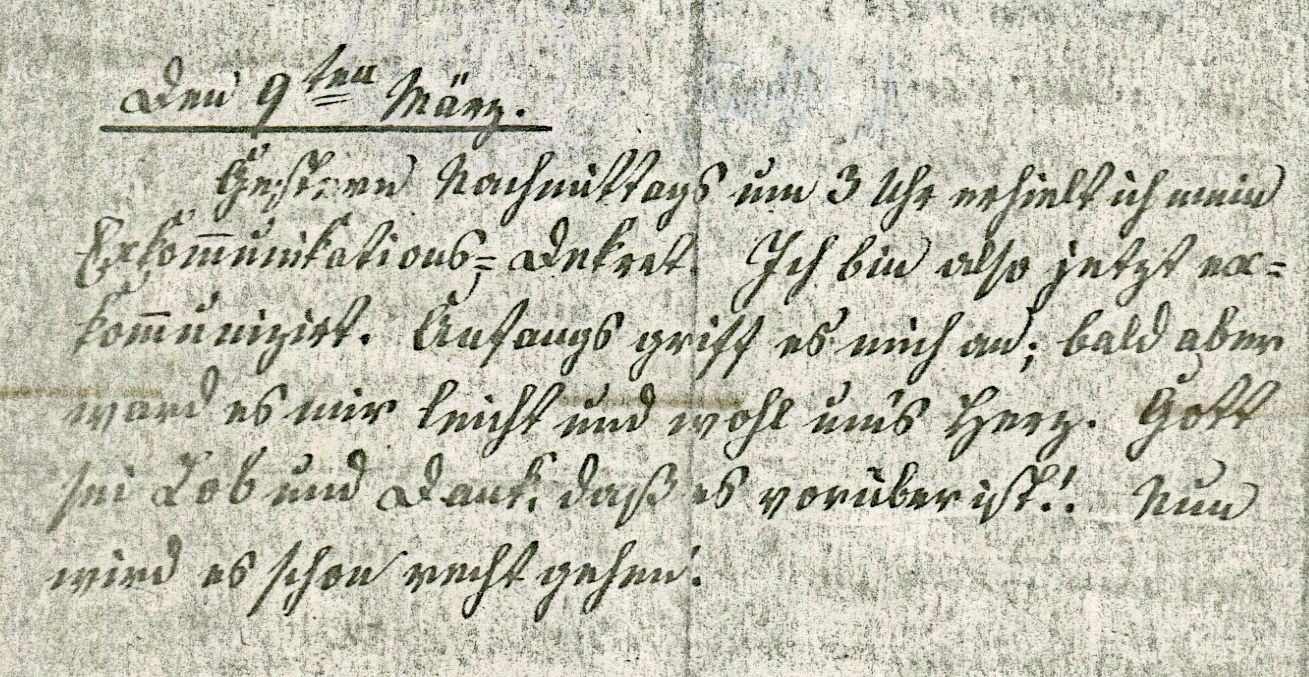 Den 9ten März.
Gestern Nachmittags um 3 Uhr erhielt ich mein
Exkom̄unikations=Dekret. Ich bin also jetzt ex=
kom̄unizirt. Anfangs griff es mich an; bald aber
ward es mir leicht und wohl um's Herz. Gott
sei Lob und Dank, daß es vorüber ist!. Nun
wird es schon recht gehen.